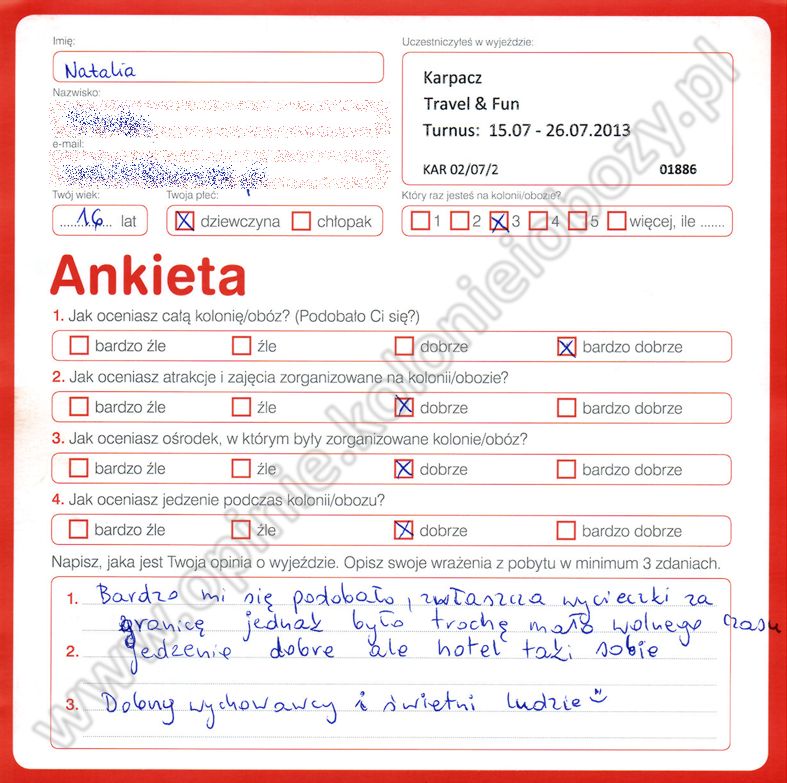 Imię:
Natalia
Nazwisko:
e-mail:
Twój wiek:
16 lat
Twoja płeć:
dziewczyna chłopak
Uczestniczyłeś w wyjeździe:
Karpacz
Travel & Fun
Turnus: 15.07 - 26.07.2013
KAR 02/07/2 01886
Który raz jesteś na kolonii/obozie?
1 2 3 4 5 więcej, ile .......
Ankieta
1. Jak oceniasz całą kolonię/obóz? (Podobało Ci się?)
bardzo źle źle dobrze bardzo dobrze
2. Jak oceniasz atrakcje i zajęcia zorganizowane na kolonii/obozie?
bardzo źle źle dobrze bardzo dobrze
3. Jak oceniasz ośrodek, w którym były zorganizowane kolonie/obóz?
bardzo źle źle dobrze bardzo dobrze
4. Jak oceniasz jedzenie podczas kolonii/obozu?
bardzo źle źle dobrze bardzo dobrze
Napisz, jaka jest Twoja opinia o wyjeździe. Opisz swoje wrażenia z pobytu w minimum 3 zdaniach.
1. Bardzo mi się podobało, zwłaszcza wycieczki za
granicę jednak było trochę mało wolnego czasu
2. jedzenie dobre ale hotel taki sobie
3. Dobrzy wychowawcy i świetni ludzie
www.opinie.kolonieiobozy.pl